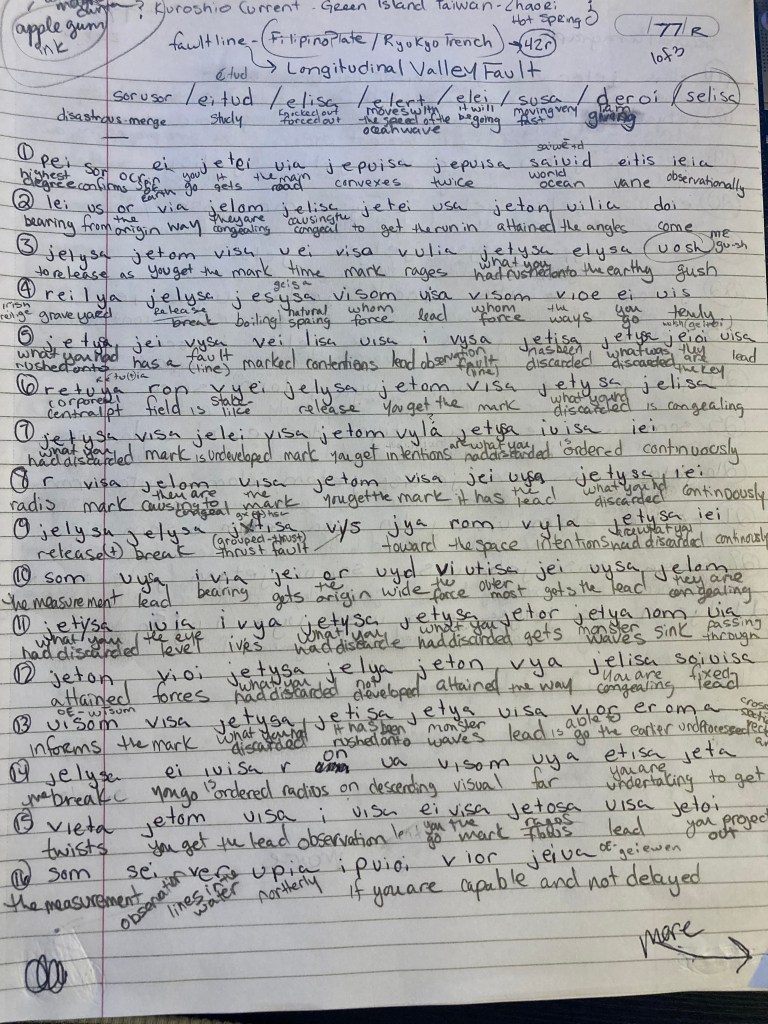 ? Kuroshio Current - Green Island Taiwan - Zhaori
Hot Spring
apple gum
ink
77 R
1 of 3
faultline - (Filipino Plate / Ryukyo Trench) → 42r
→ Longitudinal Valley Fault
etud
sorusor / eitud / elisa / elert / elei / susa / deroi / selisa
disastrous-merge study forced out moves with the speed of the ocean wave it will be going moving very fast I am giving
saiwe+d
① pei sor ei jetei via jepvisa jepvisa saivid eitis ieia
highest degree confirms earth you go it gets the main road convexes twice world ocean vane observationally
② lei us or via jelom jelisa jetei usa jeton vilia doi
bearing from the origin way they are congealing causing the congeal to get the run in attained the angles come me
③ jelysa jetom visa vei visa vulia jetysa elysa uosh gush
to release as you get the mark time mark rages what you had rushed onto the earthy gush
geisa
④ reilya jelysa jesysa visom visa visom vioe ei vis
graveyard release break boiling natural spring whom force lead whom force the ways you go
⑤ jetya jei vysa vei lisa visa i vysa jetisa jetya jeioi visa
what you had rushed onto has a fault (line) marked contentions lead observation fault (line) has been discarded what was discarded they are the key lead
⑥ retuya ron vyei jelysa jetom visa jetysa jelisa
corporeal central pt field is stable lice release you get the mark what you had discarded is congealing
⑦ jetysa visa jelei visa jetom vyla jetysa ivisa iei
what you had discarded mark is undeveloped mark you get intentions are what you had discarded is ordered continuously
⑧ r visa jelom visa jetom visa jei uysa jetysa iei
radio mark they are causing to congeal the mark you get the mark it has the lead what you had discarded continuously
⑨ jelysa jelysa jxtisa vys jya rom vyla jetysa iei
release(t) break (grouped-thrust) thrust fault toward the space intentions are what you had discarded continously
⑩ som vysa ivia jei or uyd viutisa jei uysa jelom
the measurement lead bearing gets the origin wide the force over most gets the lead they are congealing
⑪ jetysa ivia ivya jetysa jetysa jetor jetya iom via
what you had discarded the eye level ives what you had discarde what you had discarded gets monster waves sink passing through
⑫ jeton vioi jetysa jelya jeton vya jelisa soivisa
attained forces what you had discarded not developed attained the way you are congealing fixed lead
of-wisom
⑬ visom visa jetysa jetisa jetya visa vior eroma
informs the mark what you had discarded it has been rushed onto monster waves lead is able to go the earier undprocessed
⑭ jelysa ei ivisa r on va visom uya etisa jeta
the break you go is ordered radios on descending visual far you are undertaking to get
⑮ vieta jetom visa i visa ei visa jetosa visa jetoi
twists you get the lead observation you go the mark fields lead you project out
⑯ som sei vere upia ipvioi vior jeiva of-geiewen
the measurement lines in the water northerly if you are capable and not delayed
more →